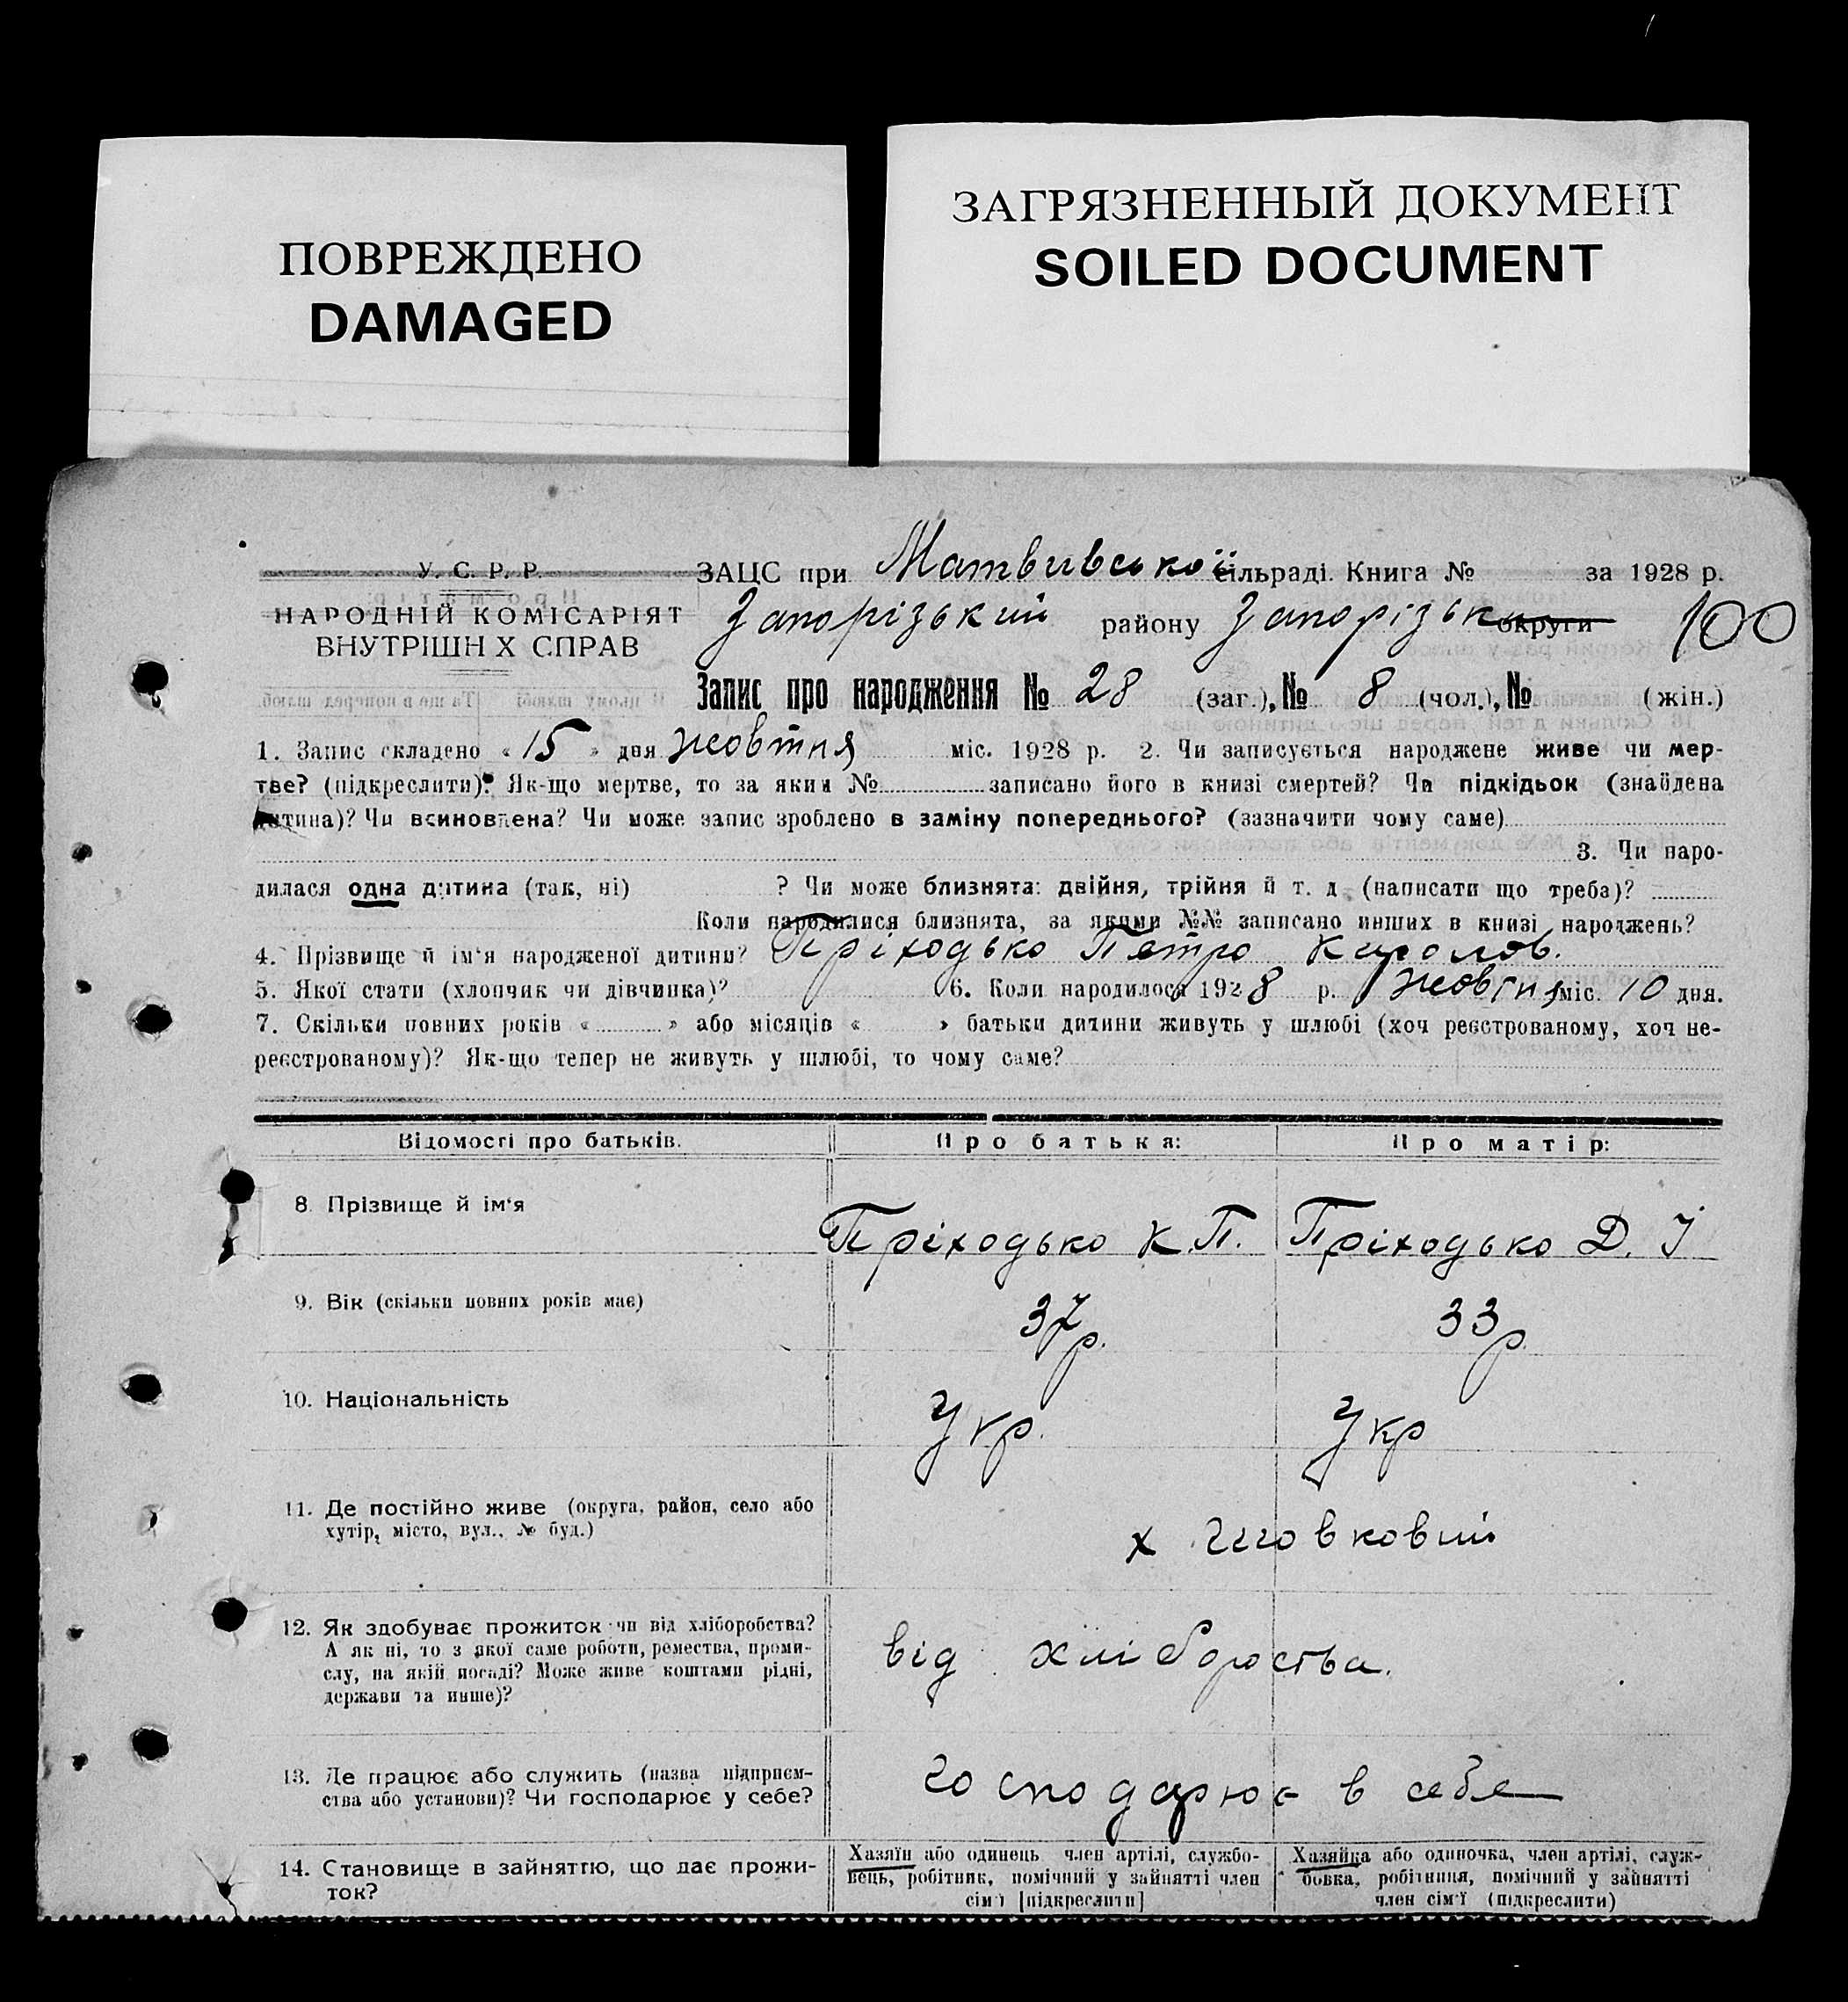 ПОВРЕЖДЕНО
DAMAGED
ЗАГРЯЗНЕННЫЙ ДОКУМЕНТ
SOILED DOCUMENT
У. С. Р. Р.
НАРОДНІЙ КОМІСАРІЯТ
ВНУТРІШН Х СПРАВ
ЗАЦС при Матвивської сільраді. Книга № за 1928 р.
Запорізький району Запорізьк округи 100
Запис про народження № 28 (заг.), № 8 (чол.), № (жін.)
1. Запис складено « 15 » дня жовтня міс. 1928 р. 2. Чи записується народжене живе чи мер-
тве? (підкреслити). Як-що мертве, то за яким № записано його в книзі смертей? Чи підкідьок (знайдена
дитина)? Чи всиновлена? Чи може запис зроблено в заміну попереднього? (зазначити чому саме)
3. Чи наро-
дилася одна дитина (так, ні) ? Чи може близнята: двійня, трійня й т. д. (написати що треба)?
Коли народилися близнята, за якими №№ записано инших в книзі народжень?
4. Прізвище й ім'я народженої дитини? Пріходько Петро Кирилов.
5. Якої стати (хлопчик чи дівчинка)? 6. Коли народилося 1928 р. жовтня міс. 10 дня.
7. Скільки повних років « » або місяців « » батьки дитини живуть у шлюбі (хоч реєстрованому, хоч не-
реєстрованому)? Як-що тепер не живуть у шлюбі, то чому саме?
Відомості про батьків. Про батька: Про матір:
8. Прізвище й ім'я Пріходько К. П. Пріходько Д. І
9. Вік (скільки повних років має) 37 р. 33 р.
10. Національність Укр. Укр
11. Де постійно живе (округа, район, село або
хутір, місто, вул., № буд.) х
12. Як здобуває прожиток чи від хліборобства?
А як ні, то з якої саме роботи, ремества, проми-
слу, на якій посаді? Може живе коштами рідні,
держави та инше)?
від хлібороства.
13. Де працює або служить (назва підприєм-
ства або установи)? Чи господарює у себе?
господарює в себе
14. Становище в зайняттю, що дає прожи-
ток?
Хазяїн або одинець член артілі, службо-
вець, робітник, помічний у зайнятті член
сім'ї [підкреслити]
Хазяйка або одиночка, член артілі, служ-
бовка, робітниця, помічний у зайнятті
член сім'ї (підкреслити)